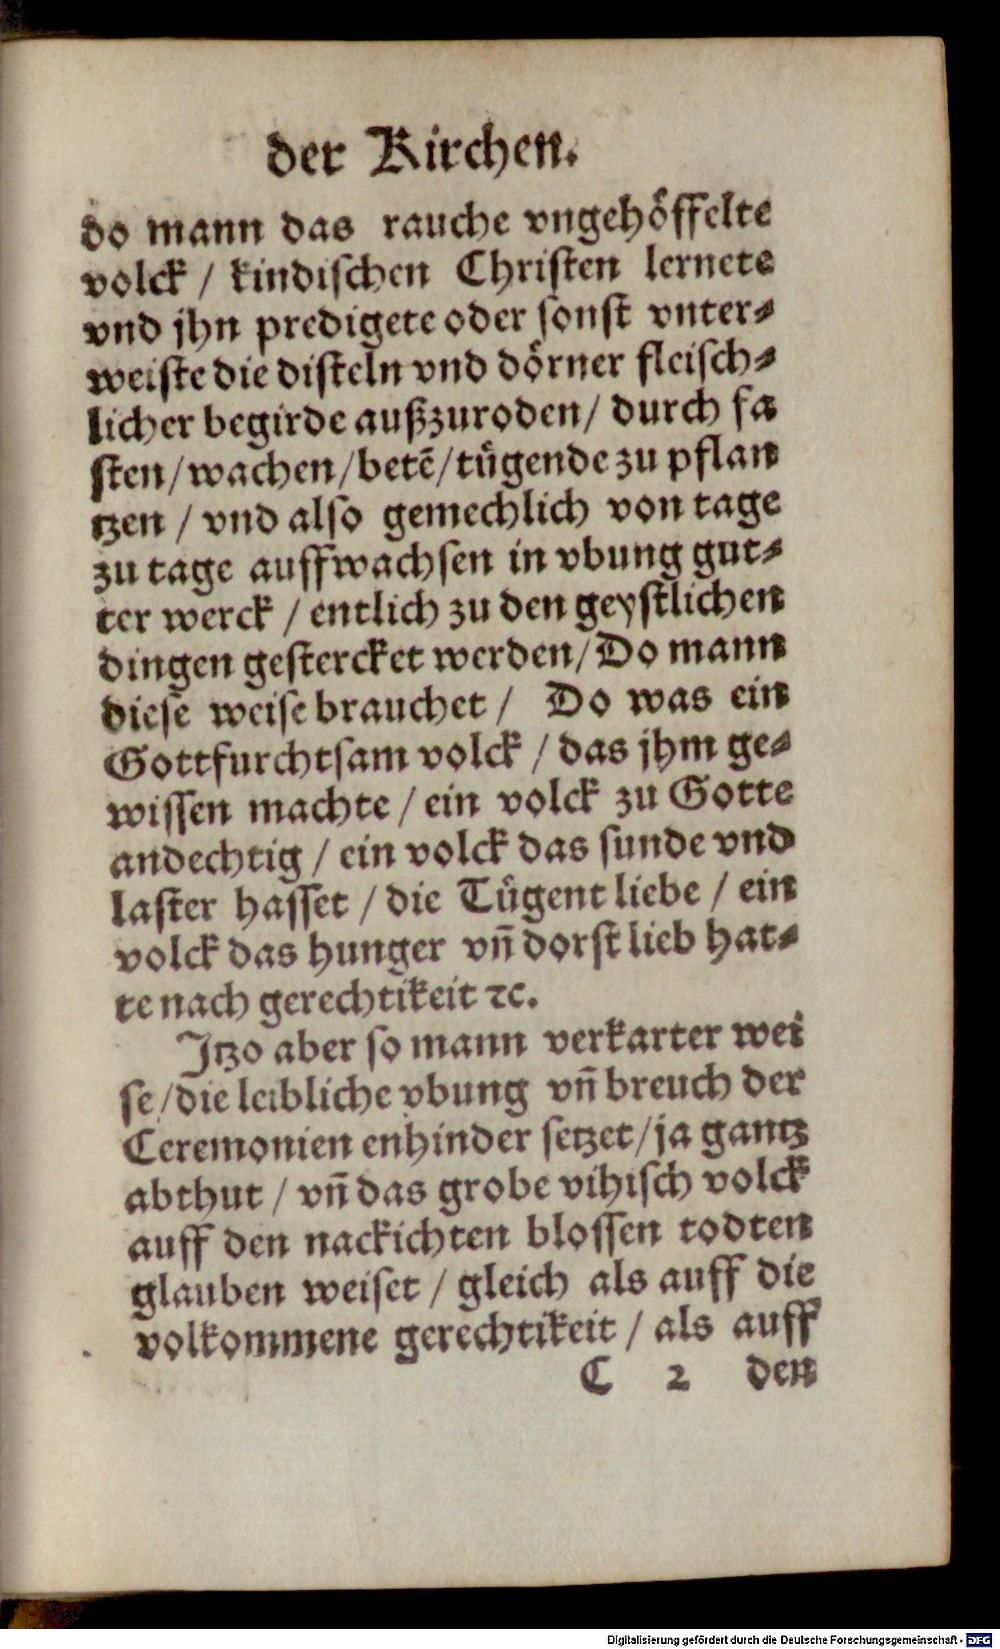 der Kirchen.
do mann das rauche vngehoͤffelte
volck / kindischen Christen lernete
vnd jhn predigete oder sonst vnter⸗
weiste die disteln vnd doͤrner fleisch⸗
licher begirde außzuroden / durch fa
sten / wachen / betē / tuͤgende zu pflan
tzen / vnd also gemechlich von tage
zu tage auffwachsen in vbung gut⸗
ter werck / entlich zu den geystlichen
dingen gestercket werden / Do mann
diese weise brauchet / Do was ein
Gottfurchtsam volck / das jhm ge⸗
wissen machte / ein volck zu Gotte
andechtig / ein volck das sunde vnd
laster hasset / die Tuͤgent liebe / ein
volck das hunger vn̄ dorst lieb hat⸗
te nach gerechtikeit ⁊c.
Jtzo aber so mann verkarter wei
se / die leibliche vbung vn̄ breuch der
Ceremonien enhinder setzet / ja gantz
abthut / vn̄ das grobe vihisch volck
auff den nackichten blossen todten
glauben weiset / gleich als auff die
volkommene gerechtikeit / als auff
C 2 den
Digitalisierung gefördert durch die Deutsche Forschungsgemeinschaft - DFG